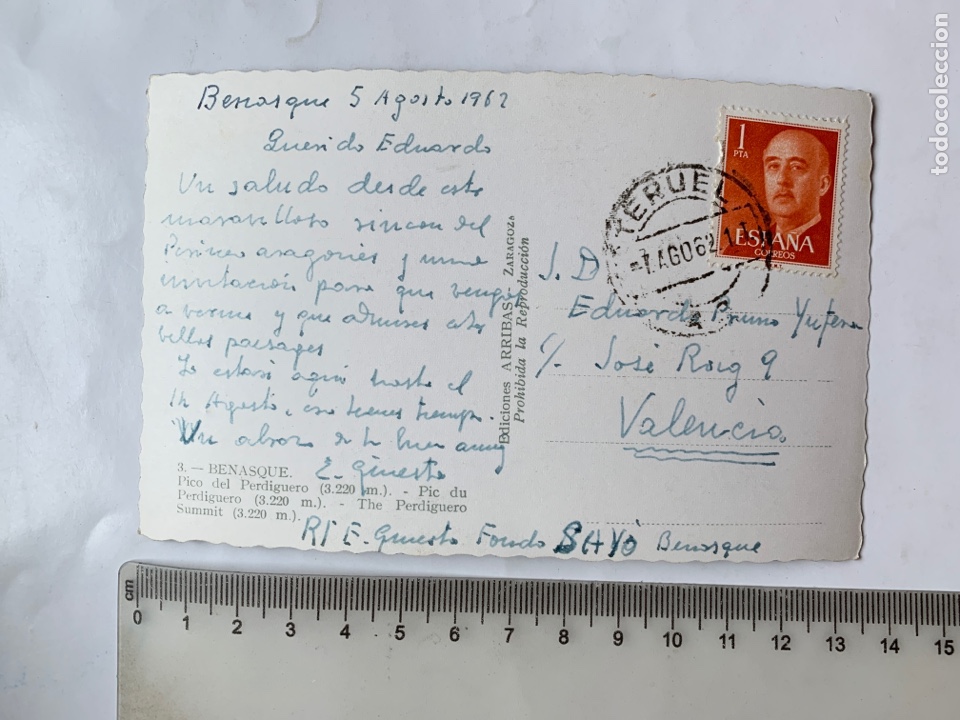 Benasque 5 Agosto 1962
Querido Eduardo
Un saludo desde este
maravilloso rincon del
Pirineo aragonés y una
invitación para que vengas
a vernos y que admires estos
bellos paisages
Yo estaré aqui hasta el
14 Agosto, eso tienes tiempo.
Un abrazo de tu buen amigo
E. Ginesta
3. — BENASQUE.
Pico del Perdiguero (3.220 m.). - Pic du
Perdiguero (3.220 m.). - The Perdiguero
Summit (3.220 m.).
RT E. Ginesta Fonda SAYÓ Benasque
Ediciones ARRIBAS - ZARAGOZA
Prohibida la Reproducción
1
PTA
ESPAÑA
CORREOS
TERUEL
-7.AGO62
S. D
Eduardo Primo Yufera
C/. José Roig 9
Valencia
cm
0 1 2 3 4 5 6 7 8 9 10 11 12 13 14 15
todocoleccion